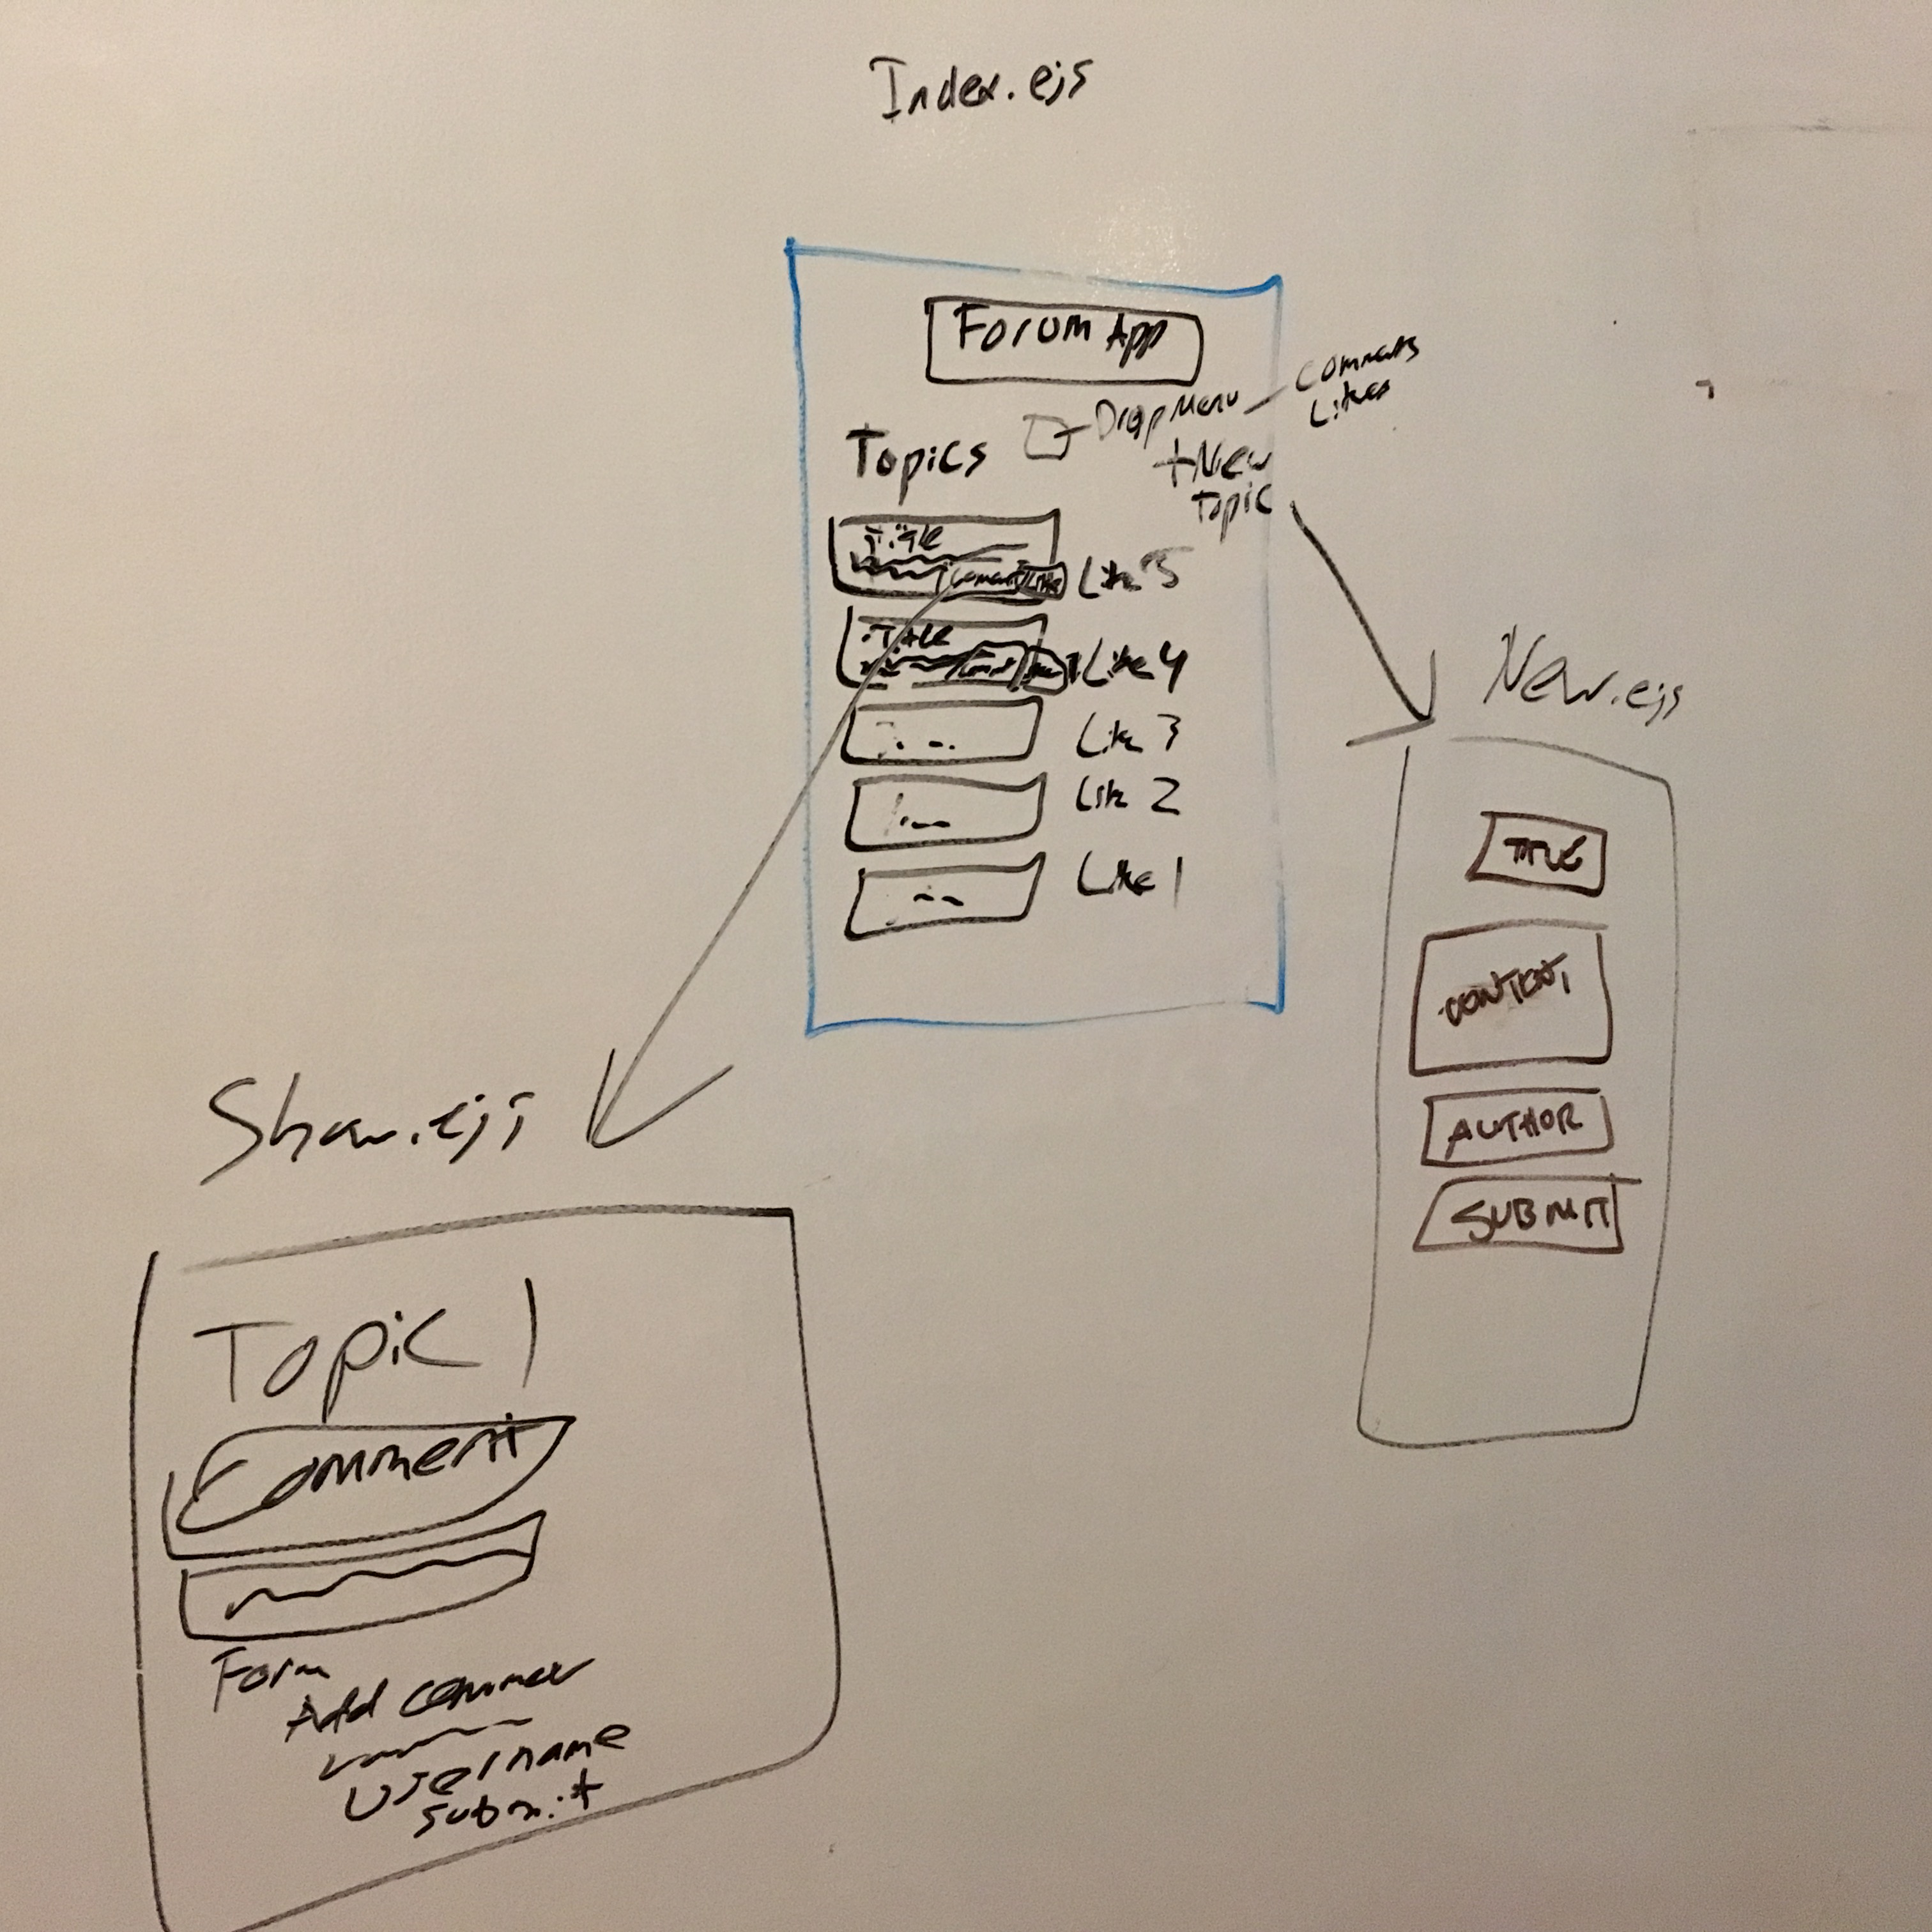 Index.ejs
Forum App
Comments
Likes
Drop Menu
Topics
+New
Topic
Title
Comment Like
Like 5
Title
Like 4
Like 3
Like 2
Like 1
New.ejs
TITLE
CONTENT
AUTHOR
SUBMIT
Show.ejs
Topic 1
Comment
Form
Add comment
Username
submit